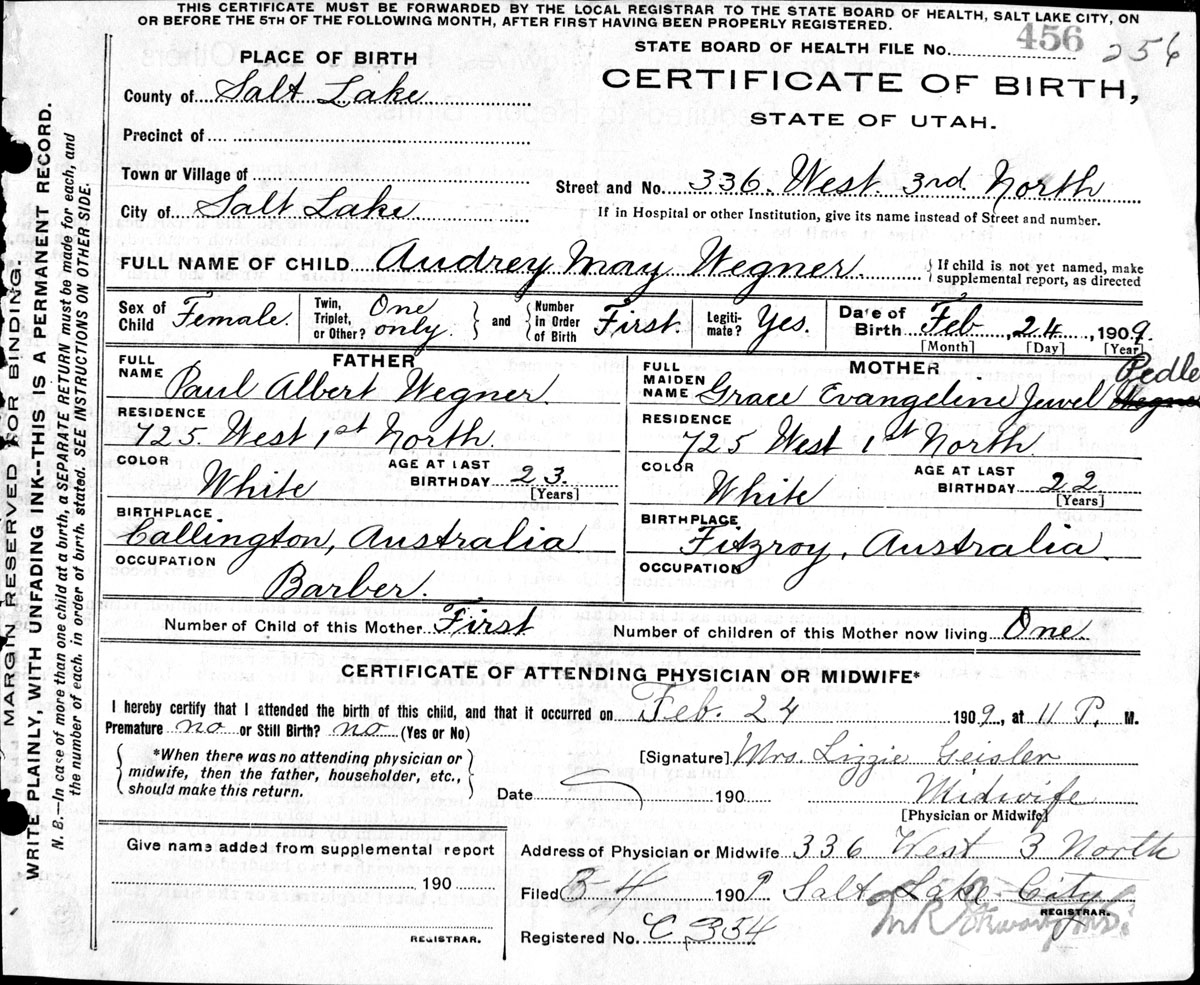 THIS CERTIFICATE MUST BE FORWARDED BY THE LOCAL REGISTRAR TO THE STATE BOARD OF HEALTH, SALT LAKE CITY, ON
OR BEFORE THE 5TH OF THE FOLLOWING MONTH, AFTER FIRST HAVING BEEN PROPERLY REGISTERED.
MARGIN RESERVED FOR BINDING.
WRITE PLAINLY, WITH UNFADING INK--THIS IS A PERMANENT RECORD.
N. B.—In case of more than one child at a birth, a SEPARATE RETURN must be made for each, and
the number of each, in order of birth, stated. SEE INSTRUCTIONS ON OTHER SIDE.
PLACE OF BIRTH
STATE BOARD OF HEALTH FILE No. 456 256
CERTIFICATE OF BIRTH,
STATE OF UTAH.
County of Salt Lake
Precinct of
Town or Village of
Street and No. 336. West 3rd North
City of Salt Lake
If in Hospital or other Institution, give its name instead of Street and number.
FULL NAME OF CHILD Audrey May Wegner. { If child is not yet named, make
supplemental report, as directed
Sex of Child Female. Twin, Triplet, or Other? One only. } and { Number in Order of Birth First. Legiti-mate? Yes. Date of Birth Feb, 24, 1909.
[Month] [Day] [Year]
FATHER
FULL NAME Paul Albert Wegner.
RESIDENCE
725. West 1st North.
COLOR White AGE AT LAST BIRTHDAY 23. [Years]
BIRTHPLACE
Callington, Australia
OCCUPATION
Barber.
MOTHER
FULL MAIDEN NAME Grace Evangeline Jewel Wegner Pedler
RESIDENCE
725 West 1st North
COLOR White AGE AT LAST BIRTHDAY 22. [Years]
BIRTHPLACE
Fitzroy, Australia.
OCCUPATION
Number of Child of this Mother First Number of children of this Mother now living One.
CERTIFICATE OF ATTENDING PHYSICIAN OR MIDWIFE*
I hereby certify that I attended the birth of this child, and that it occurred on Feb. 24 1909, at 11 P. M.
Premature no or Still Birth? no (Yes or No)
{ *When there was no attending physician or
midwife, then the father, householder, etc.,
should make this return. }
[Signature] Mrs. Lizzie Geisler
Date 190 Midwife
[Physician or Midwife]
Give name added from supplemental report
190
REGISTRAR.
Address of Physician or Midwife 336 West 3 North
Filed 3-4 1909 Salt Lake City
REGISTRAR.
Registered No. C 354